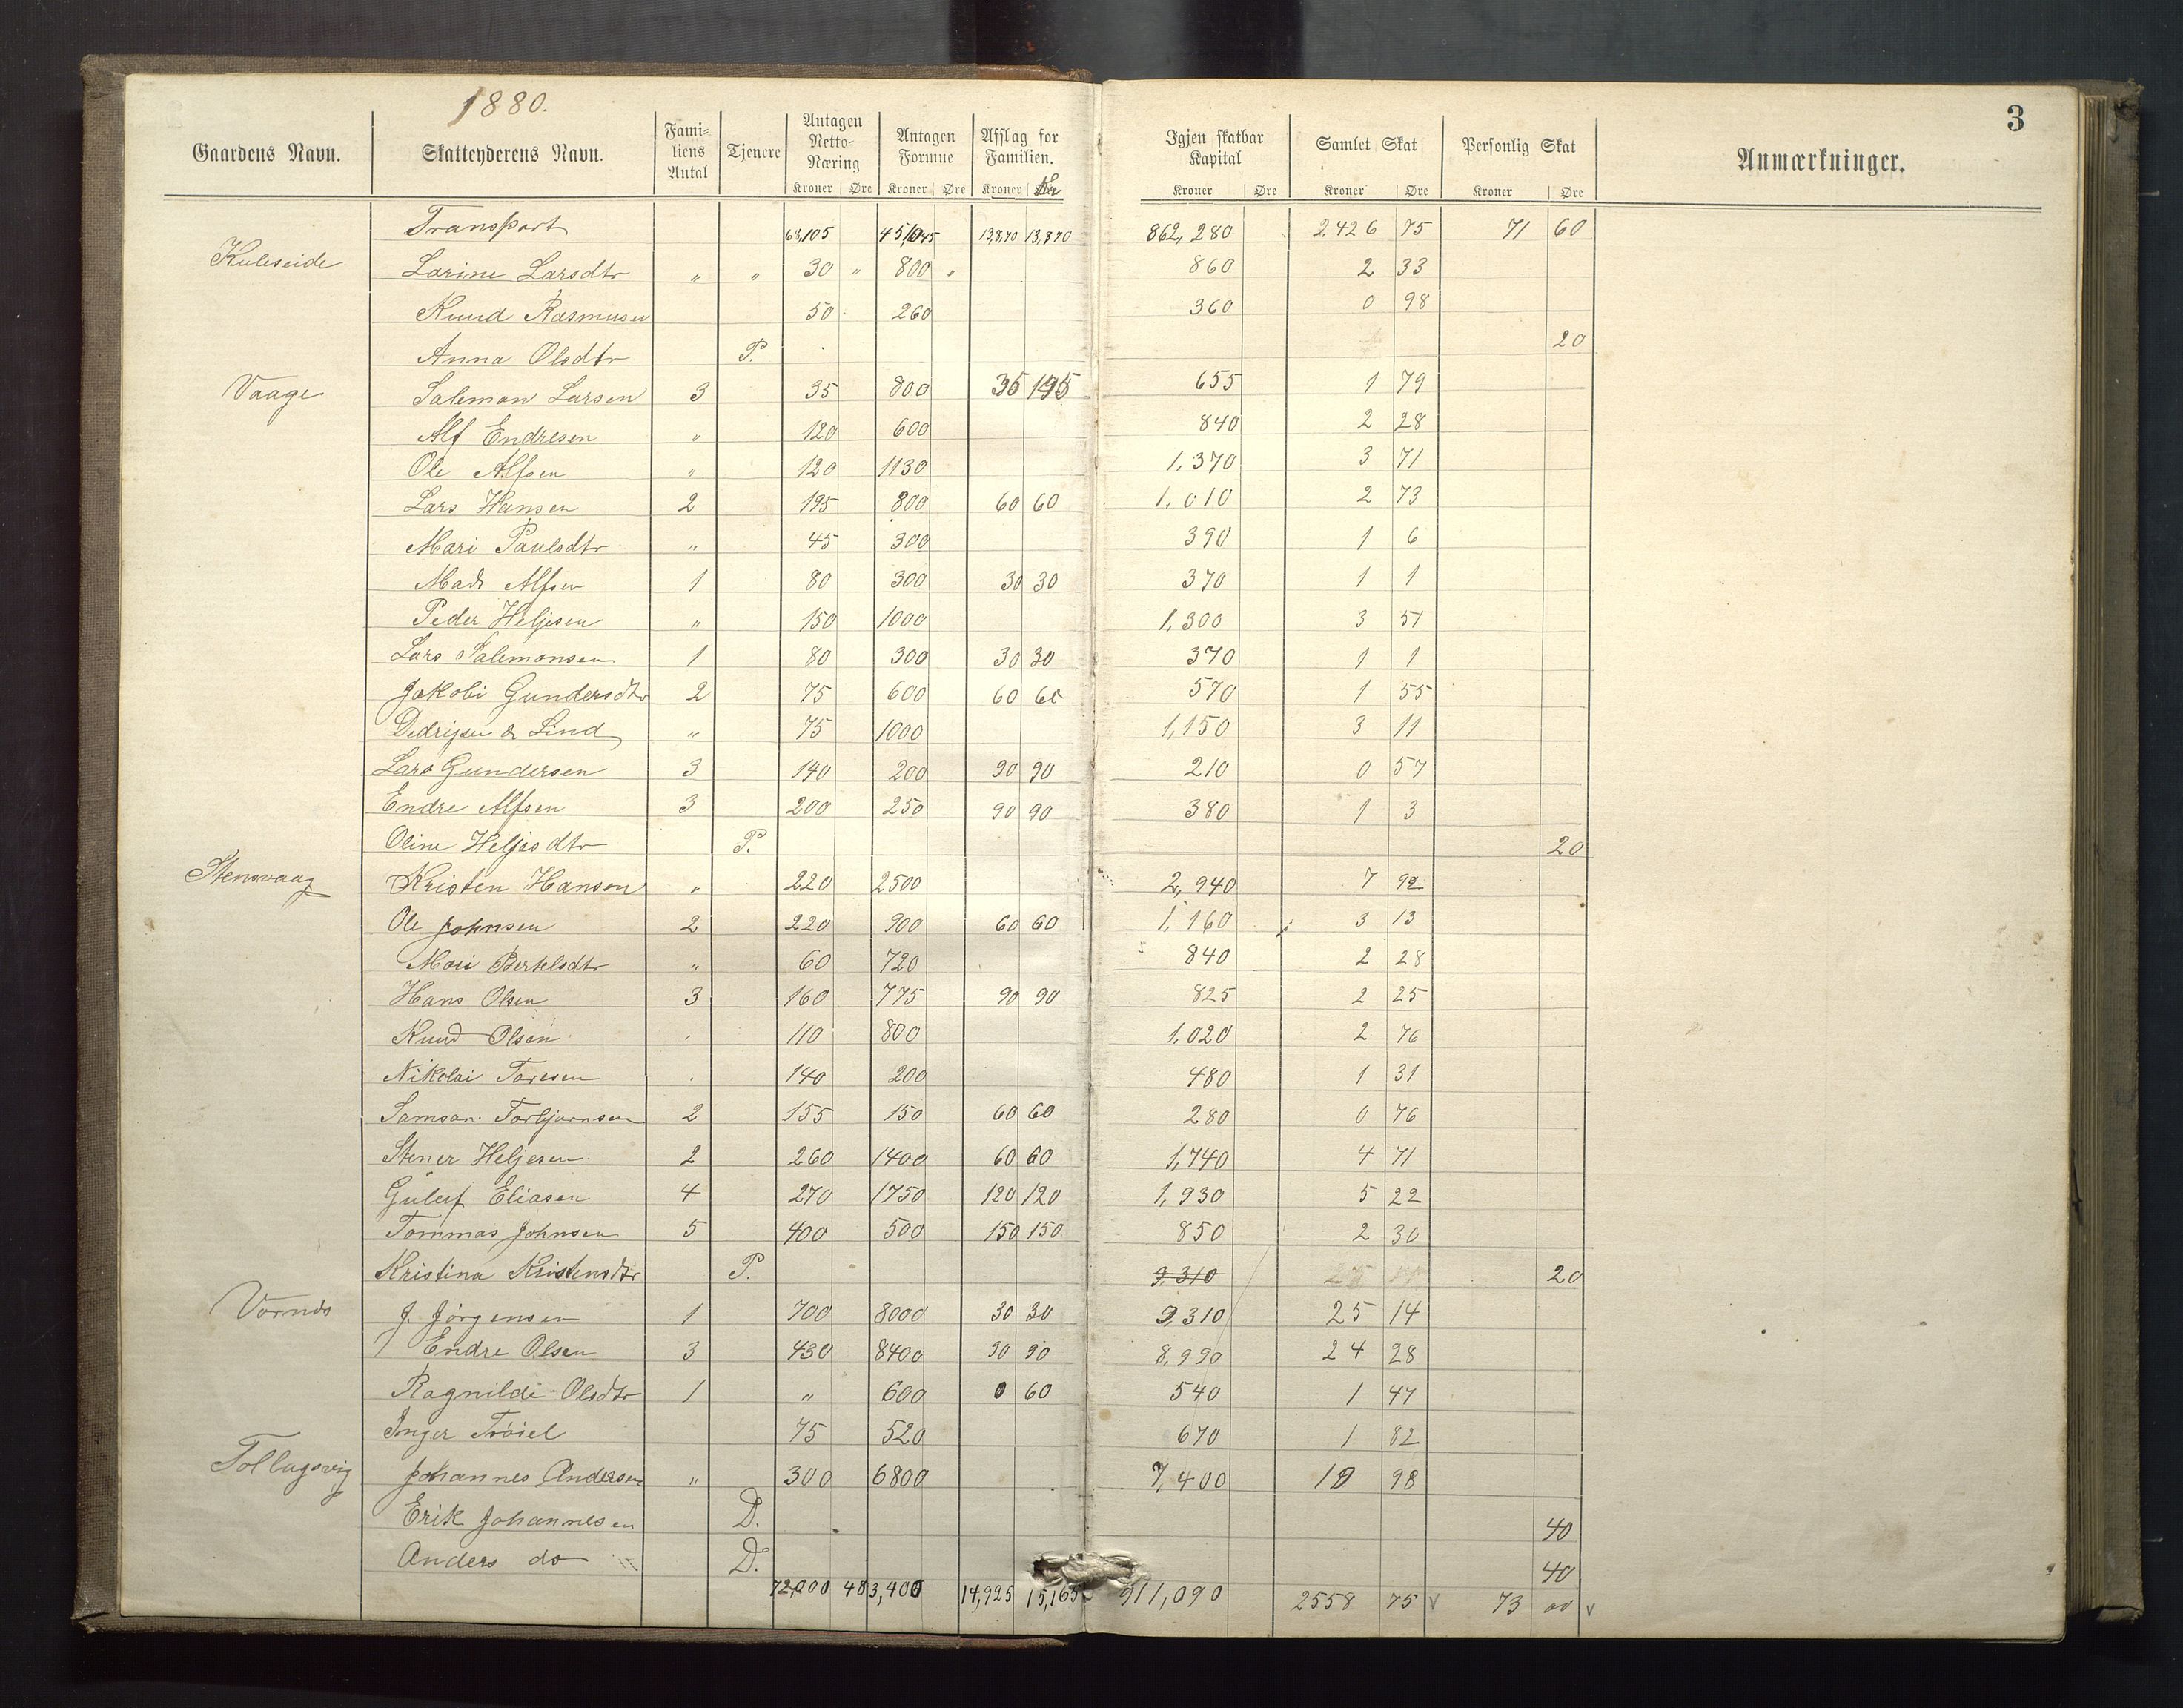 1880.
3
Gaardens Navn. Skatteyderens Navn. Familiens Antal Tjenere Antagen Netto-Næring Antagen Formue Afslag for Familien. Igjen skatbar Kapital Samlet Skat Personlig Skat Anmærkninger.
Kroner Øre Kroner Øre Kroner Kroner Øre Kroner Øre Kroner Øre
Transport 63,105 13,870 13,870 862,280 2,426 75 71 60
Kuleseide Larine Larsdtr " " 30 " 800 " 860 2 33
Knud Rasmusen 50 260 360 0 98
Anna Olsdtr P. 20
Vaage Salemon Larsen 3 35 800 35 195 655 1 79
Alf Endresen " 120 600 840 2 28
Ole Alfsen " 120 1130 1,370 3 71
Lars Hansen 2 195 800 60 60 1,010 2 73
Mari Paulsdtr " 45 300 390 1 6
Mads Alfsen 1 80 300 30 30 370 1 1
Peder Heljesen " 150 1000 1,300 3 51
Lars Salemonsen 1 80 300 30 30 370 1 1
Jakobi Gundersdtr 2 75 600 60 60 570 1 55
& Lind " 75 1000 1,150 3 11
Lars Gundersen 3 140 200 90 90 210 0 57
Endre Alfsen 3 200 250 90 90 380 1 3
Oline Heljesdtr P. 20
Stensvaag Kristen Hansen " 220 2500 2,940 7 92
Ole Johnsen 2 220 900 60 60 1,160 3 13
Mari Bertelsdtr " 60 720 840 2 28
Hans Olsen 3 160 775 90 90 825 2 25
Knud Olsen 110 800 1,020 2 76
Nikolai Toresen 140 200 480 1 31
Samson Torbjørnsen 2 155 150 60 60 280 0 76
Stener Heljesen 2 260 1400 60 60 1,740 4 71
Gulerf Eliasen 4 270 1750 120 120 1,930 5 22
Tommas Johnsen 5 400 500 150 150 850 2 30
Kristina Kristensdtr P. 9,310 20
Vornds J. Jørgensen 1 700 8000 30 30 9,310 25 14
Endre Olsen 3 430 8400 90 90 8,990 24 28
Ragnilde Olsdtr 1 " 600 0 60 540 1 47
Inger Trøiel 75 520 670 1 82
Tollagsvig Johannes Andersen " 300 6800 7,400 19 98
Erik Johannesen D. 40
Anders do D. 40
72,000 483,400 14,925 15,165 911,090 2558 75 v 73 00 v